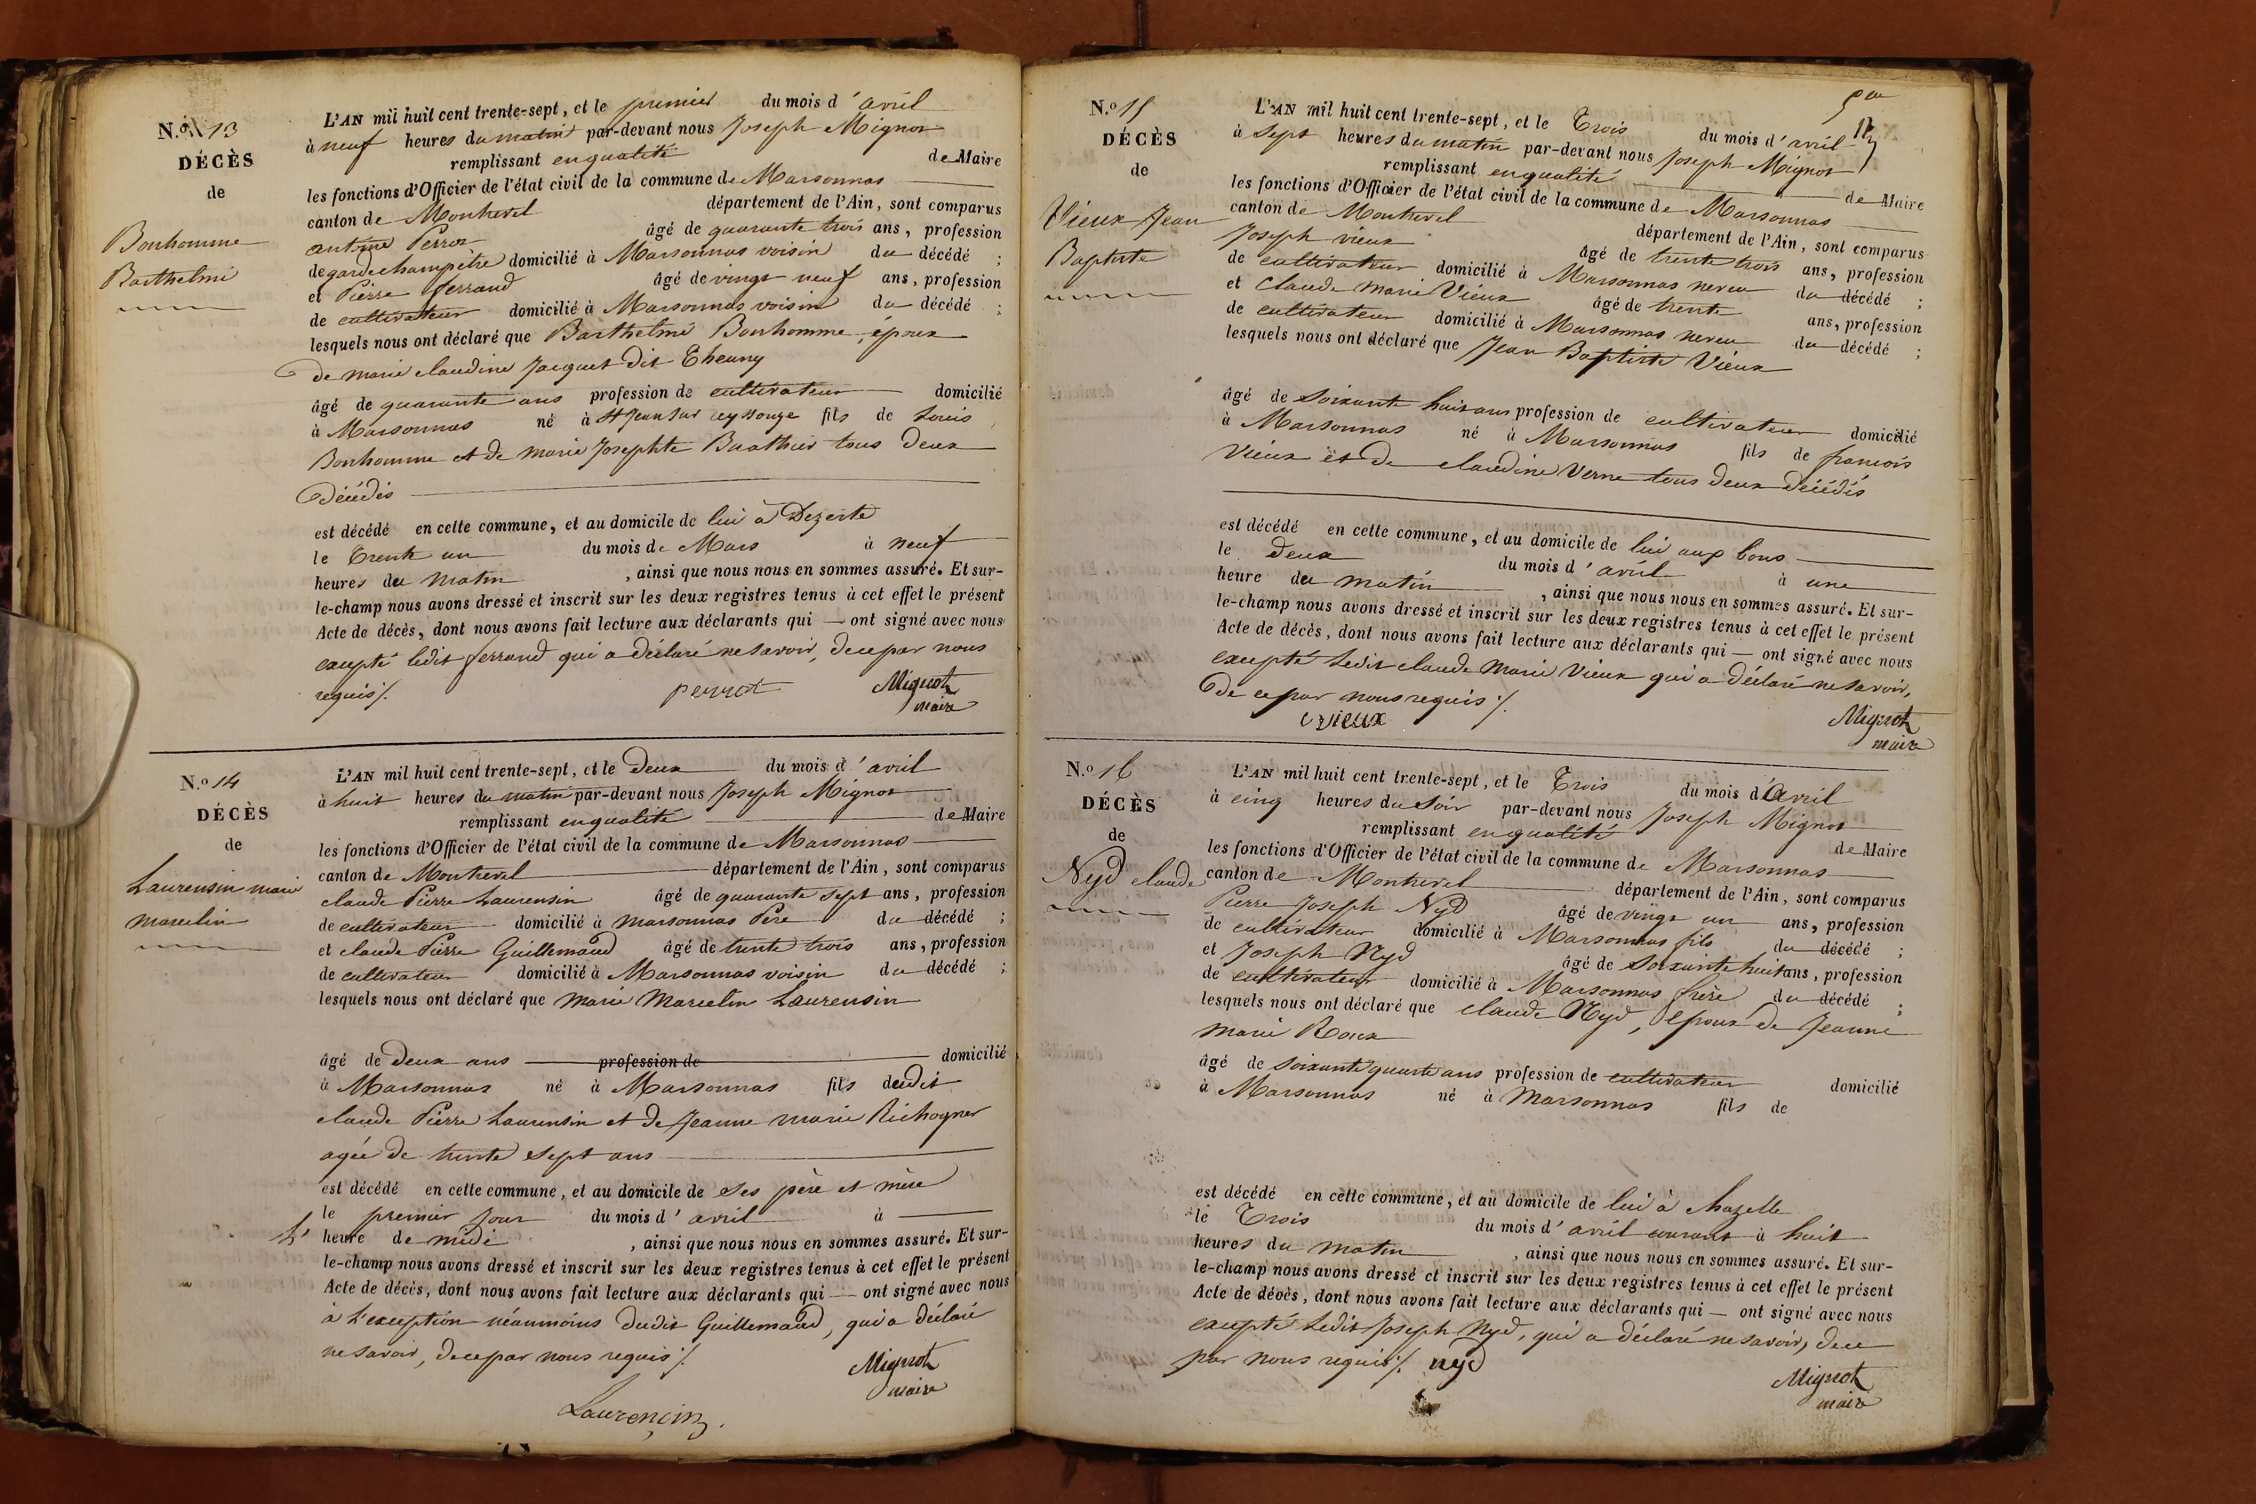 N.º 13
DÉCÈS
de
Bonhomme
Barthelmi
L'AN mil huit cent trente-sept, et le premier du mois d'avril
à neuf heures du matin par-devant nous Joseph Mignot
remplissant en qualité de Maire
les fonctions d'Officier de l'état civil de la commune de Marsonnas
canton de Montrevel département de l'Ain, sont comparus
antoine Perrot âgé de quarante trois ans, profession
de garde champêtre domicilié à Marsonnas voisin du décédé ;
et Pierre ferrand âgé de vingt neuf ans, profession
de cultivateur domicilié à Marsonnas voisin du décédé ;
lesquels nous ont déclaré que Barthelmi Bonhomme, époux
de marie claudine Jacquet dit
âgé de quarante ans profession de cultivateur domicilié
à Marsonnas né à St Jean sur reyssouze fils de Louis
Bonhomme et de marie Josephte tous deux
décédés
est décédé en cette commune, et au domicile de lui à Dezerte
le Trente un du mois de Mars à neuf
heures du matin, ainsi que nous nous en sommes assuré. Et sur-
le-champ nous avons dressé et inscrit sur les deux registres tenus à cet effet le présent
Acte de décès, dont nous avons fait lecture aux déclarants qui — ont signé avec nous
excepté ledit ferrand qui a déclaré ne savoir, de ce par nous
requis ./.
perrot
Mignot
maire
N.º 14
DÉCÈS
de
Laurensin marie
marcelin
L'AN mil huit cent trente-sept, et le deux du mois d'avril
à huit heures du matin par-devant nous Joseph Mignot
remplissant en qualité de Maire
les fonctions d'Officier de l'état civil de la commune de Marsonnas
canton de Montrevel département de l'Ain, sont comparus
claude Pierre Laurensin âgé de quarante sept ans, profession
de cultivateur domicilié à marsonnas Père du décédé ;
et claude Pierre Guillemaud âgé de trente trois ans, profession
de cultivateur domicilié à Marsonnas voisin du décédé ;
lesquels nous ont déclaré que Marie Marcelin Laurensin
âgé de deux ans profession de domicilié
à Marsonnas né à Marsonnas fils dudit
claude Pierre Laurensin et de Jeanne marie
agée de trente sept ans
est décédé en cette commune, et au domicile de ses père et mère
le premier jour du mois d'avril à
L' heure de midi, ainsi que nous nous en sommes assuré. Et sur-
le-champ nous avons dressé et inscrit sur les deux registres tenus à cet effet le présent
Acte de décès, dont nous avons fait lecture aux déclarants qui — ont signé avec nous
à l'exception néanmoins dudit Guillemaud, qui a déclaré
ne savoir, de ce par nous requis ./.
Mignot
maire
Laurençin
N.º 15
DÉCÈS
de
Vieux Jean
Baptiste
L'AN mil huit cent trente-sept, et le Trois du mois d'avril
à sept heures du matin par-devant nous Joseph Mignot
remplissant en qualité de Maire
les fonctions d'Officier de l'état civil de la commune de Marsonnas
canton de Montrevel département de l'Ain, sont comparus
Joseph vieux âgé de trente trois ans, profession
de cultivateur domicilié à Marsonnas neveu du décédé ;
et claude marie Vieux âgé de trente ans, profession
de cultivateur domicilié à Marsonnas neveu du décédé ;
lesquels nous ont déclaré que Jean Baptiste Vieux
âgé de soixante huit ans profession de cultivateur domicilié
à Marsonnas né à Marsonnas fils de francois
Vieux et de claudine Verne tous deux décédés
est décédé en cette commune, et au domicile de lui aux bons
le deux du mois d'avril à une
heure du matin, ainsi que nous nous en sommes assuré. Et sur-
le-champ nous avons dressé et inscrit sur les deux registres tenus à cet effet le présent
Acte de décès, dont nous avons fait lecture aux déclarants qui — ont signé avec nous
excepté Ledit claude Marie Vieux qui a déclaré ne savoir,
de ce par nous requis ./.
vieux
Mignot
maire
N.º 16
DÉCÈS
de
Nyd claude
L'AN mil huit cent trente-sept, et le Trois du mois d'Avril
à cinq heures du soir par-devant nous Joseph Mignot
remplissant en qualité de Maire
les fonctions d'Officier de l'état civil de la commune de Marsonnas
canton de Montrevel département de l'Ain, sont comparus
Pierre Joseph Nyd âgé de vingt un ans, profession
de cultivateur domicilié à Marsonnas fils du décédé ;
et Joseph Nyd âgé de soixante huit ans, profession
de cultivateur domicilié à Marsonnas frère du décédé ;
lesquels nous ont déclaré que claude Nyd, Epoux de Jeanne
marie Roux
âgé de soixante quatre ans profession de cultivateur domicilié
à Marsonnas né à Marsonnas fils de
est décédé en cette commune, et au domicile de lui à chazelle
le Trois du mois d'avril courant à huit
heures du matin, ainsi que nous nous en sommes assuré. Et sur-
le-champ nous avons dressé et inscrit sur les deux registres tenus à cet effet le présent
Acte de décès, dont nous avons fait lecture aux déclarants qui — ont signé avec nous
excepté Ledit Joseph Nyd, qui a déclaré ne savoir, de ce
par nous requis ./. nyd
Mignot
maire